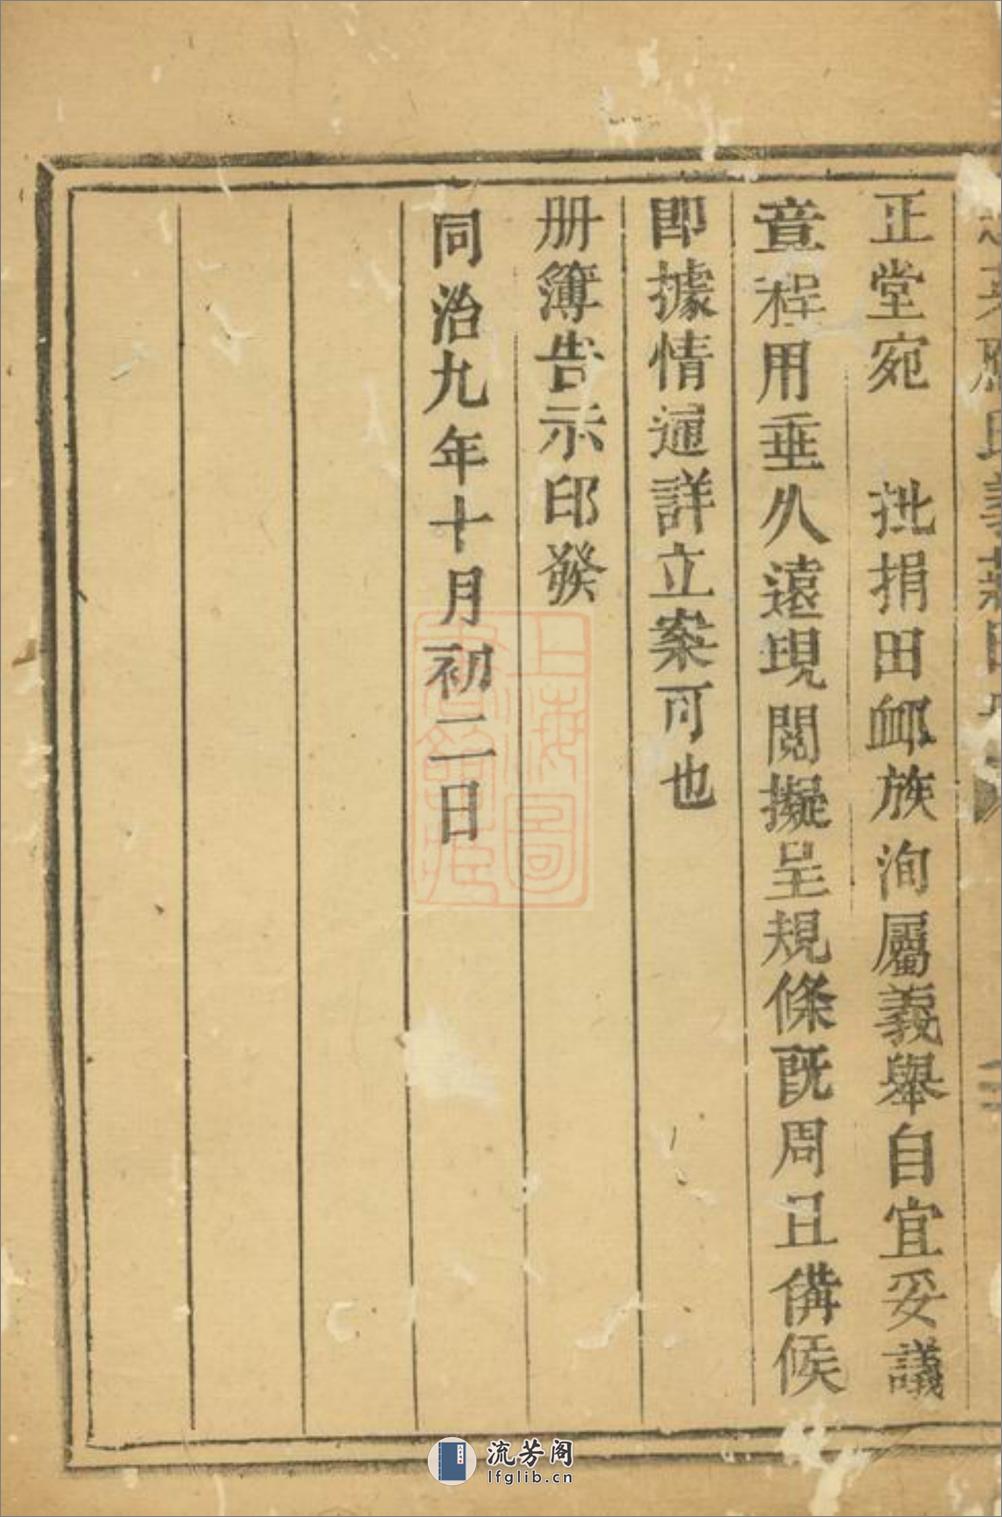 正堂宛　批捐田䘏族洵屬義舉自宜妥議
章程用垂久遠現閱擬呈規條旣周且備候
即據情通詳立案可也
册簿告示印發
同治九年十月初二日
上海圖書館藏
流芳阁
lfglib.cn